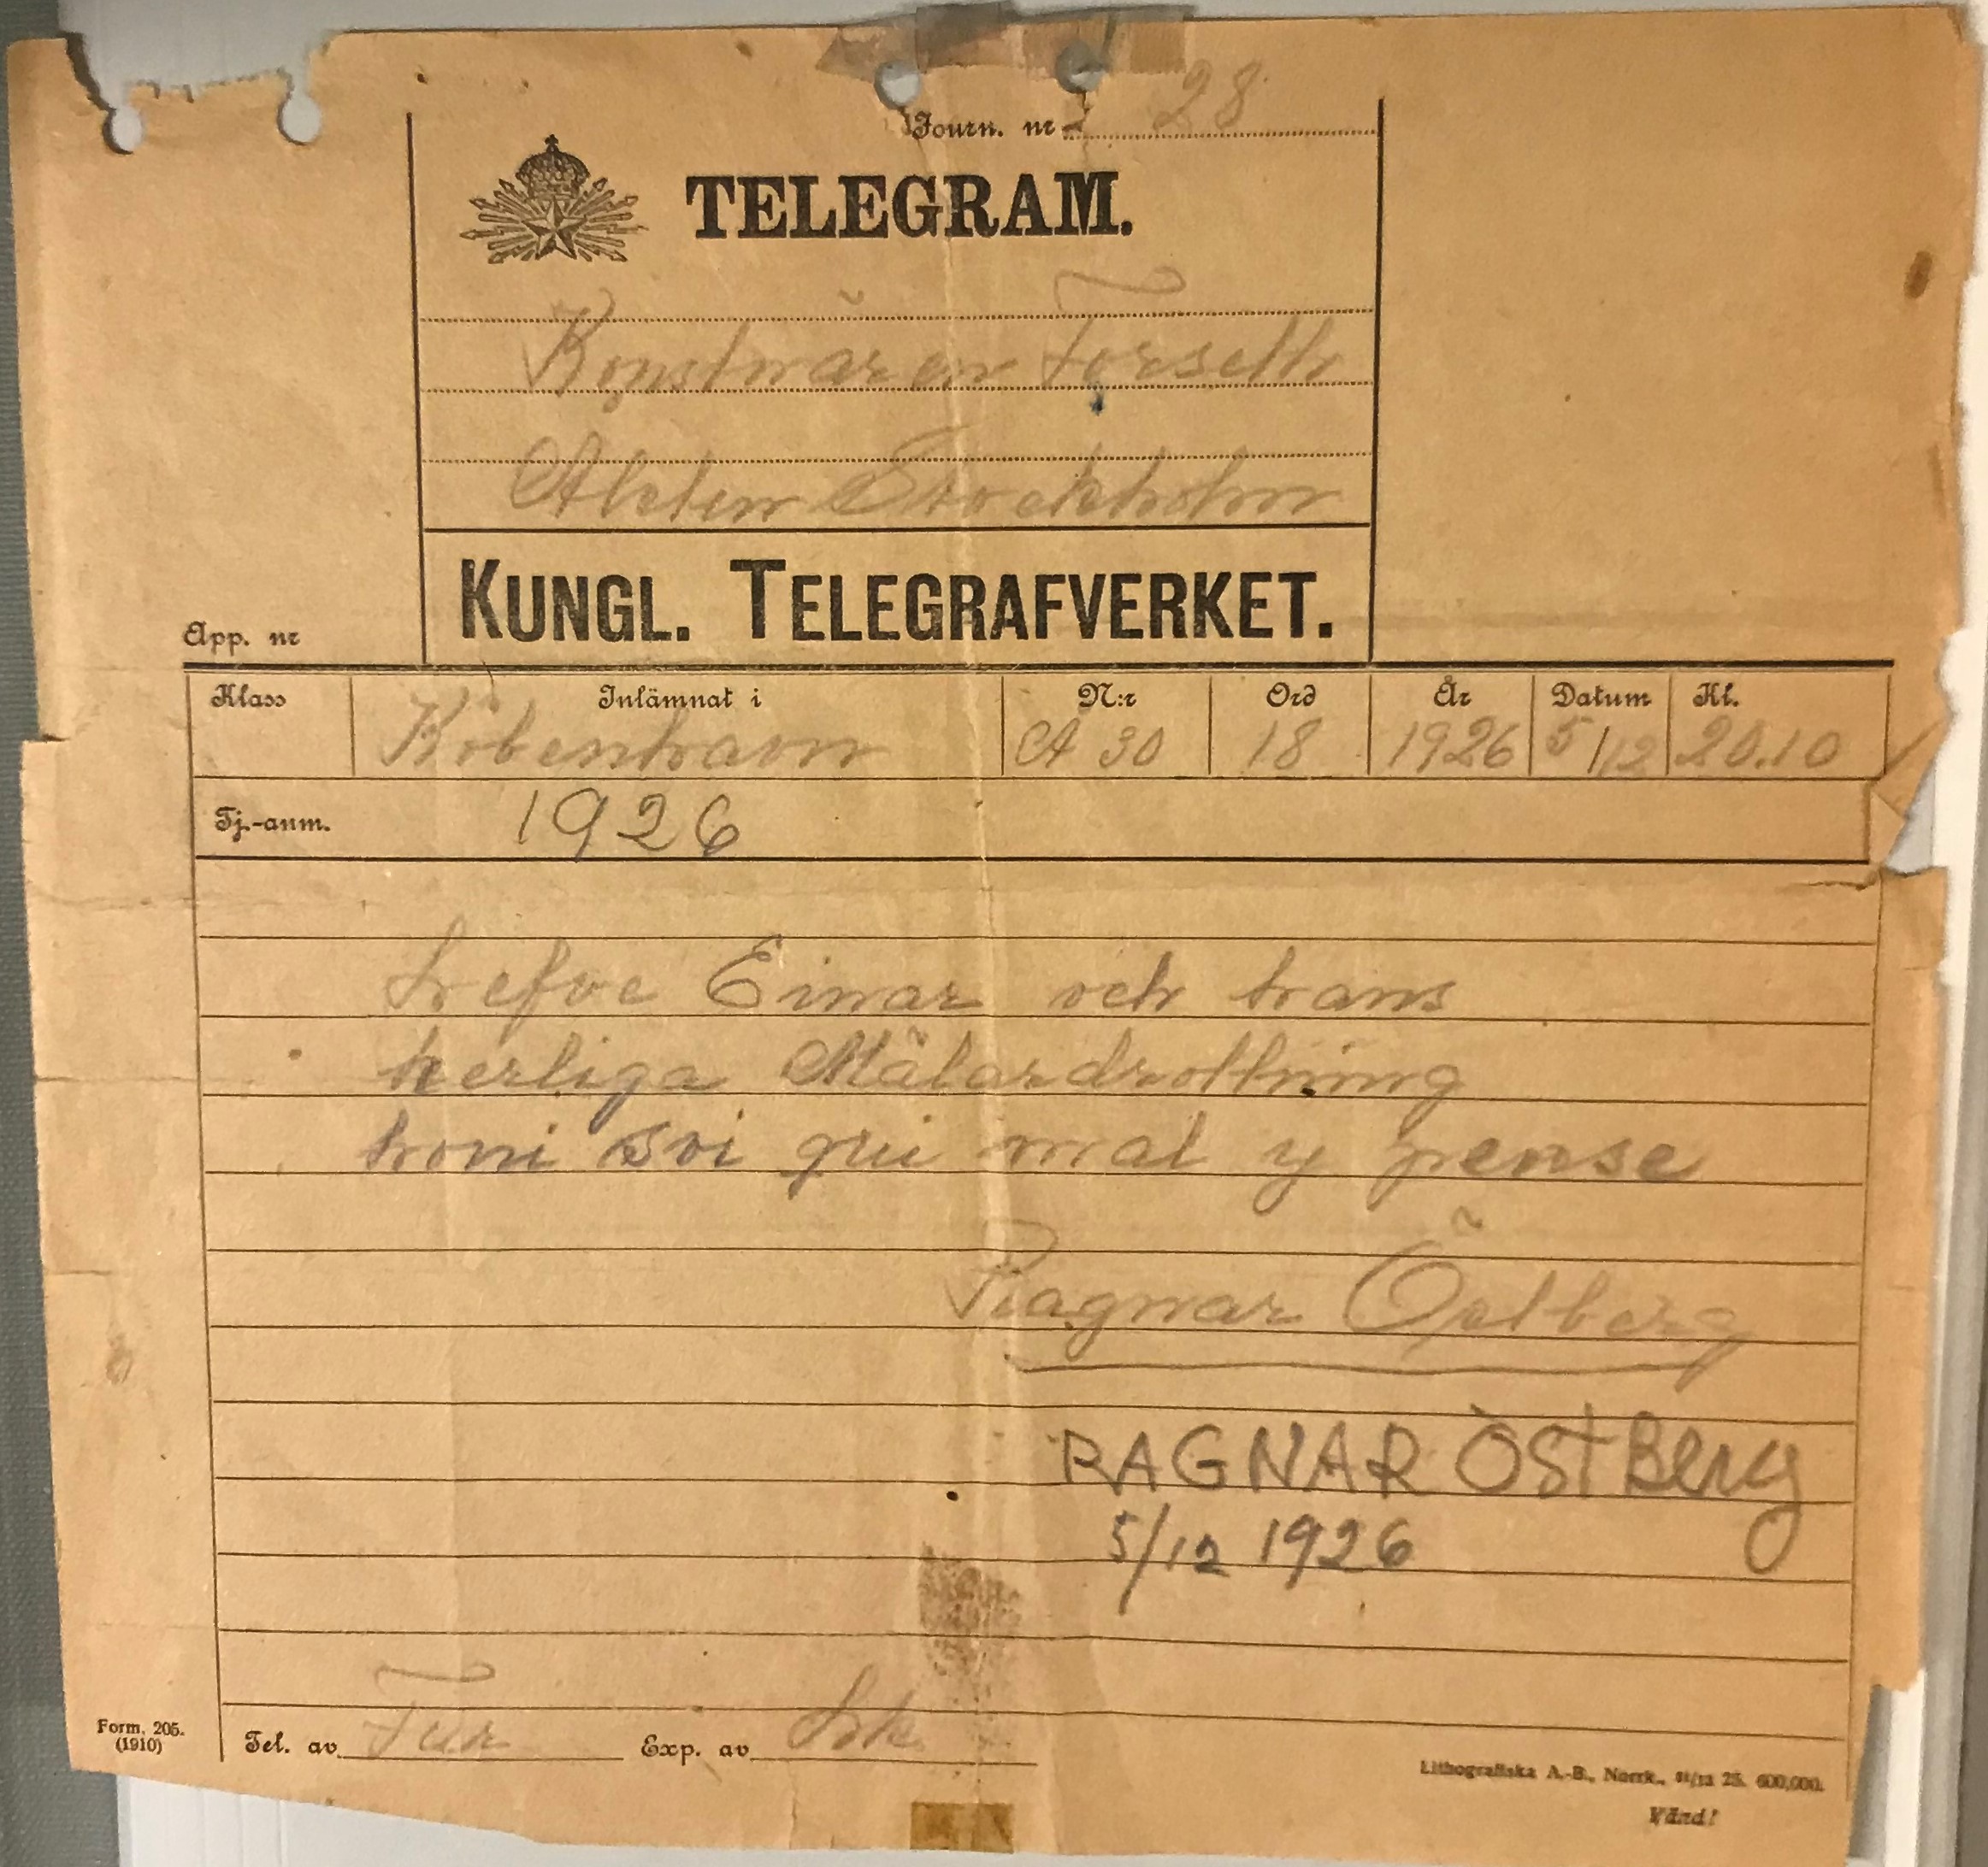 Journ. nr 28
TELEGRAM.
Konstnären Forseth
Akten Stockholm
KUNGL. TELEGRAFVERKET.
App. nr
Klass Inlämnat i N:r Ord År Datum Kl.
Köbenhavn A 30 18 1926 5/12 20.10
Tj.-anm. 1926
Lefve Einar och hans
herliga Mälardrottning
honi soi qui mal y pense
Ragnar Östberg
RAGNAR ÖSTBerg
5/12 1926
Form. 205.
(1910)
Tel. av Exp. av
Lithografiska A.-B., Norrk., 25. 600,000.
Vänd!